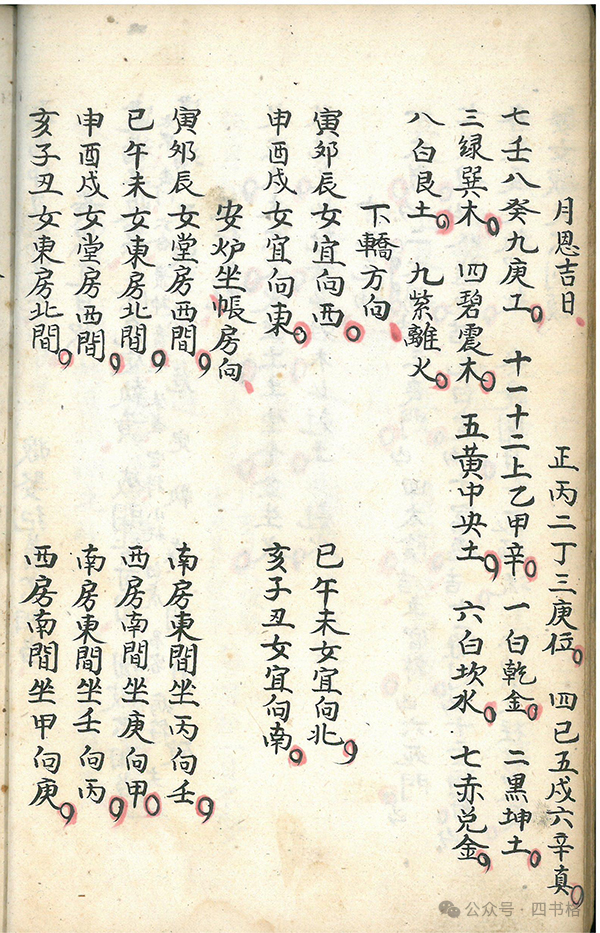 月恩吉日 正丙二丁三庚位。四己五戌六辛真。
七壬八癸九庚工。十一十二上乙甲辛。一白乾金。二黑坤土。
三绿巽木。四碧震木。五黄中央土。六白坎水。七赤兑金。
八白艮土。九紫離火。
下轎方向
寅卯辰女宜向西。巳午未女宜向北。
申酉戌女宜向東。亥子丑女宜向南。
安炉坐帳房向
寅卯辰女堂房西間。南房東間坐丙向壬。
巳午未女東房北間。西房南間坐庚向甲。
申酉戌女堂房西間。南房東間坐壬向丙。
亥子丑女東房北間。西房南間坐甲向庚。
公众号·四书格